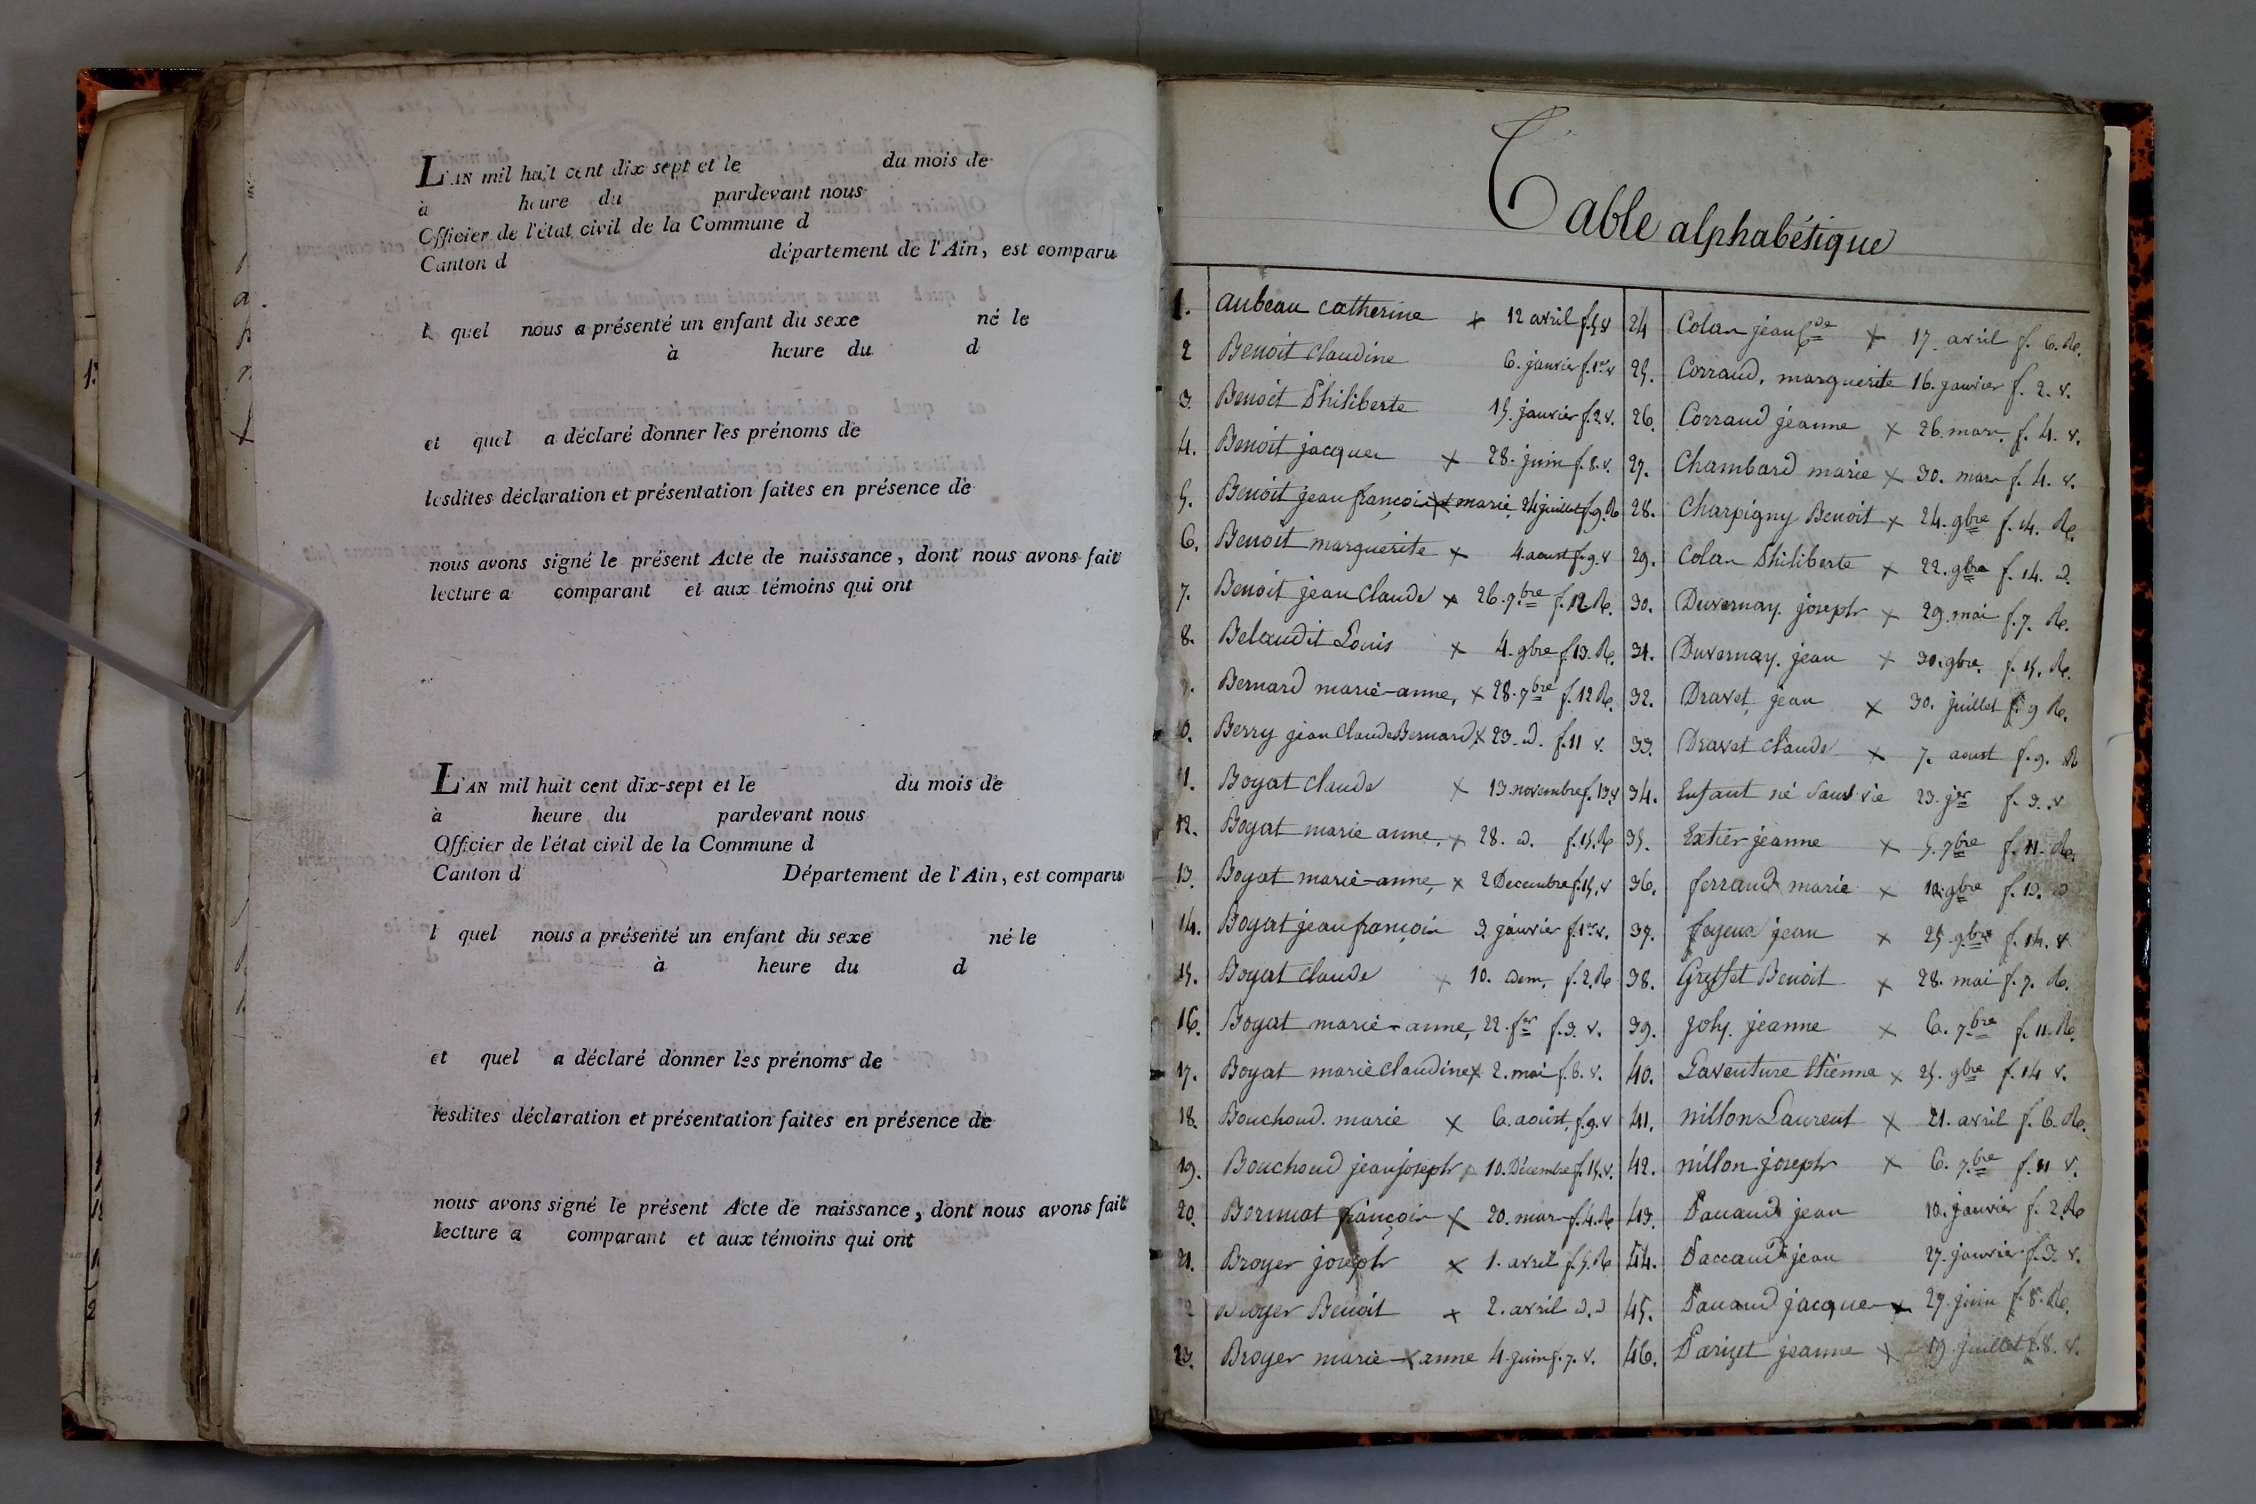 L'AN mil huit cent dix sept et le du mois de
à heure du pardevant nous
Officier de l'état civil de la Commune d
Canton d département de l'Ain, est comparu
l quel nous a présenté un enfant du sexe né le
à heure du d
et quel a déclaré donner les prénoms de
lesdites déclaration et présentation faites en présence de
nous avons signé le présent Acte de naissance, dont nous avons fait
lecture a comparant et aux témoins qui ont
L'AN mil huit cent dix-sept et le du mois de
à heure du pardevant nous
Officier de l'état civil de la Commune d
Canton d Département de l'Ain, est comparu
l quel nous a présenté un enfant du sexe né le
à heure du d
et quel a déclaré donner les prénoms de
lesdites déclaration et présentation faites en présence de
nous avons signé le présent Acte de naissance, dont nous avons fait
lecture a comparant et aux témoins qui ont
Table alphabétique
1. aubeau catherine x 12 avril f. 5 v
2 Benoit claudine 6. janvier f. 1er v
3. Benoit Philiberte 15. janvier f. 2 v.
4. Benoit jacques x 28. juin f. 8. v.
5. Benoit jean françois x marie 24 juillet f. 9. R
6. Benoit marguerite x 4. aoust f. 9. v
7. Benoit jean claude x 26. 7.bre f. 12 R.
8. Belaudit Louis x 4. 9bre f. 13. R.
9. Bernard marie-anne, x 28. 7bre f. 12 R.
10. Berry jean Claude Bernard x 23. d. f. 11 v.
11. Boyat claude x 13. novembre f. 13 v
12. Boyat marie anne, x 28. d. f. 15. R
13. Boyat marie-anne, x 2 Decembre f. 15. v
14. Boyat jean françois 3. janvier f. 1er v.
15. Boyat claude x 10. dem. f. 2. R
16. Boyat marie-anne, 22. fer f. 3. v.
17. Boyat marie claudine x 2. mai f. 6. v.
18. Bouchoud. marie x 6. aoust, f. 9. v
19. Bouchoud jean joseph x 10. Décembre f. 15. v.
20. françois x 20. mars f. 4. R
21. Broyer joseph x 1. avril f. 5. R
22 Broyer Benoit x 2. avril d. d
23. Broyer marie x anne 4. juin f. 7. v.
24 Colas jean x 17. avril f. 6. R.
25. Corraud, marguerite 16. janvier f. 2. v.
26. Corraud jeanne x 26. mars. f. 4. v.
27. Chambard marie x 30. mars f. 4. v.
28. Charpigny Benoit x 24. 9bre f. 14. R.
29. Colas Philiberte x 22. 9bre f. 14. d.
30. Duvernay. joseph x 29. mai f. 7. R.
31. Duvernay. jean x 30. 9bre, f. 15. R.
32. Dravet, jean x 30. juillet f. 9 R.
33. Dravet claude x 7. aoust f. 9. R
34. Enfant né sans vie 23. jer f. 3. v
35. Extier jeanne x 5. 7bre f. 11. R.
36. ferraud marie x 9bre f. 13. d
37. foyeux jean x 25. 9bre f. 14. v
38. Greffet Benoit x 28. mai f. 7. R.
39. joly. jeanne x 6. 7.bre f. 11. R.
40. Laventure Etienne x 25. 9bre f. 14 v.
41. nillon Laurent x 21. avril f. 6. R.
42. nillon joseph x 6. 7.bre f. 11 v.
43. Pacaud jean 10. janvier f. 2. R
44. Paccaud jean 27. janvier f. 3. v.
45. Pacaud jacques x 27. juin f. 8. R.
46. Parizet jeanne x 19. juillet f. 8. v.